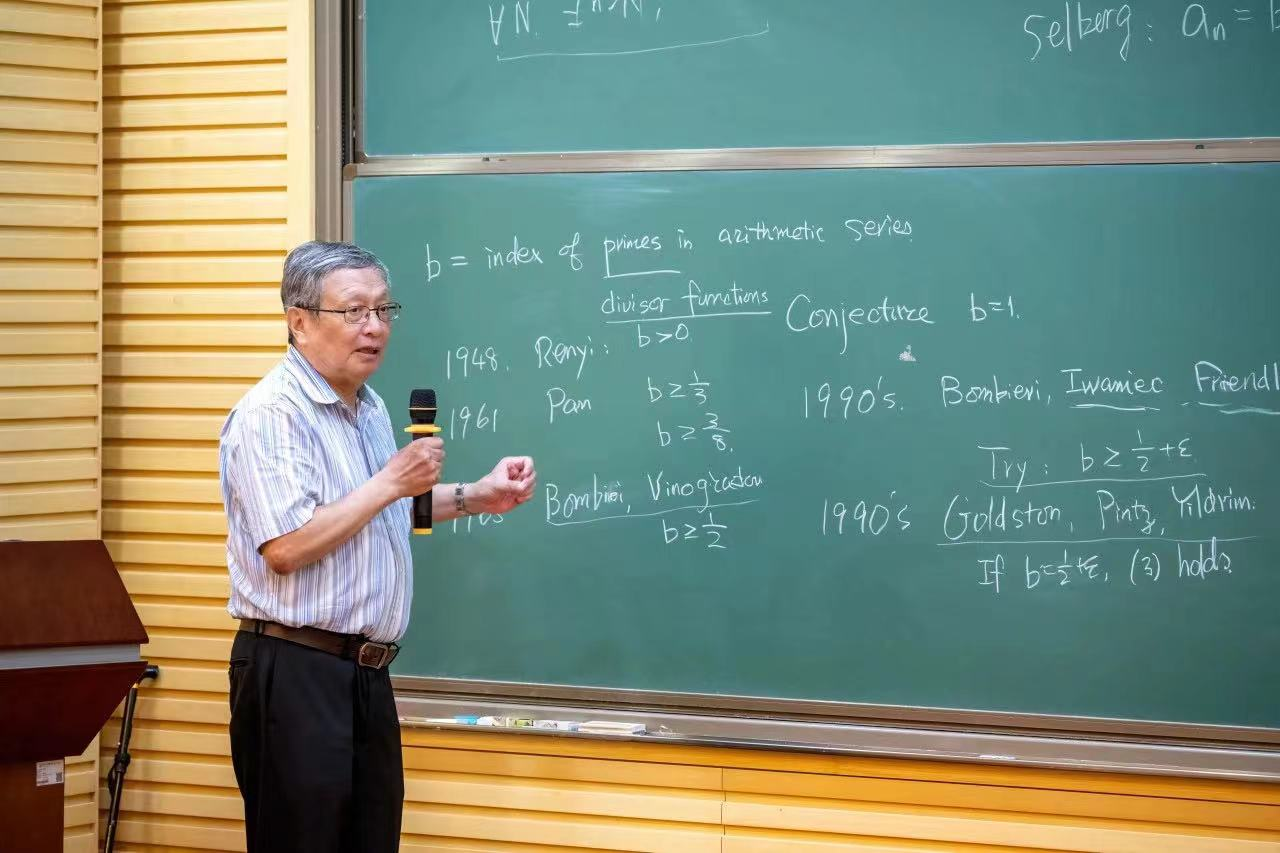 Selberg: an =
b = index of primes in arithmetic series.
divisor functions
Conjecture b=1.
1948. Renyi: b>0
1961 Pan b≥1/3
b≥3/8.
Bombiei, Vinogradov
b≥1/2
1990's. Bombieri, Iwaniec, Friendl
Try: b≥1/2+ε
1990's Goldston, Pintz, Yildrim.
If b=1/2+ε, (3) holds.